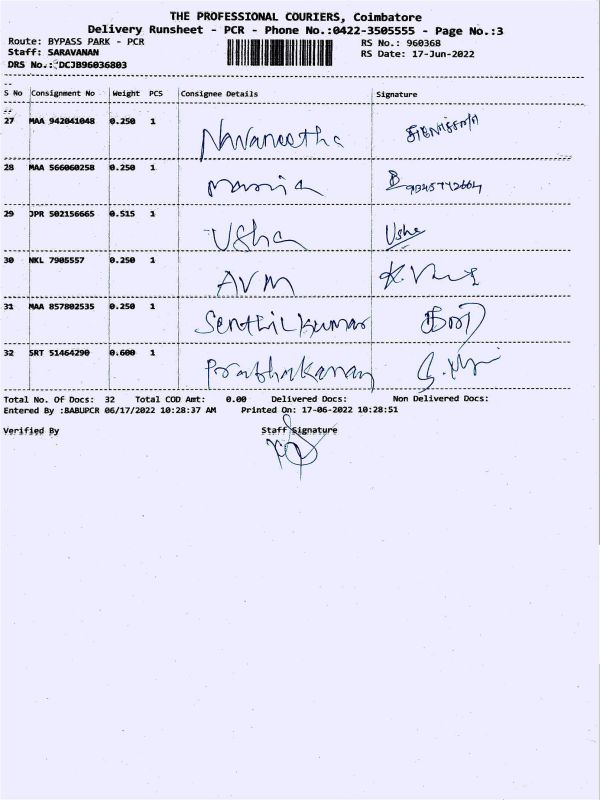 THE PROFESSIONAL COURIERS, Coimbatore
Delivery Runsheet - PCR - Phone No.:0422-3505555 - Page No.:3
Route: BYPASS PARK - PCR RS No.: 960368
Staff: SARAVANAN RS Date: 17-Jun-2022
DRS No.: DCJB96036803
S No Consignment No Weight PCS Consignee Details Signature
27 MAA 942041048 0.250 1 Navaneetha
28 MAA 566060258 0.250 1
29 JPR 502156665 0.515 1 Usha Usha
30 NKL 7905557 0.250 1 AVM
31 MAA 857802535 0.250 1 Senthilkumar
32 SRT 51464290 0.600 1 Prabhakaran
Total No. Of Docs: 32 Total COD Amt: 0.00 Delivered Docs: Non Delivered Docs:
Entered By :BABUPCR 06/17/2022 10:28:37 AM Printed On: 17-06-2022 10:28:51
Verified By Staff Signature